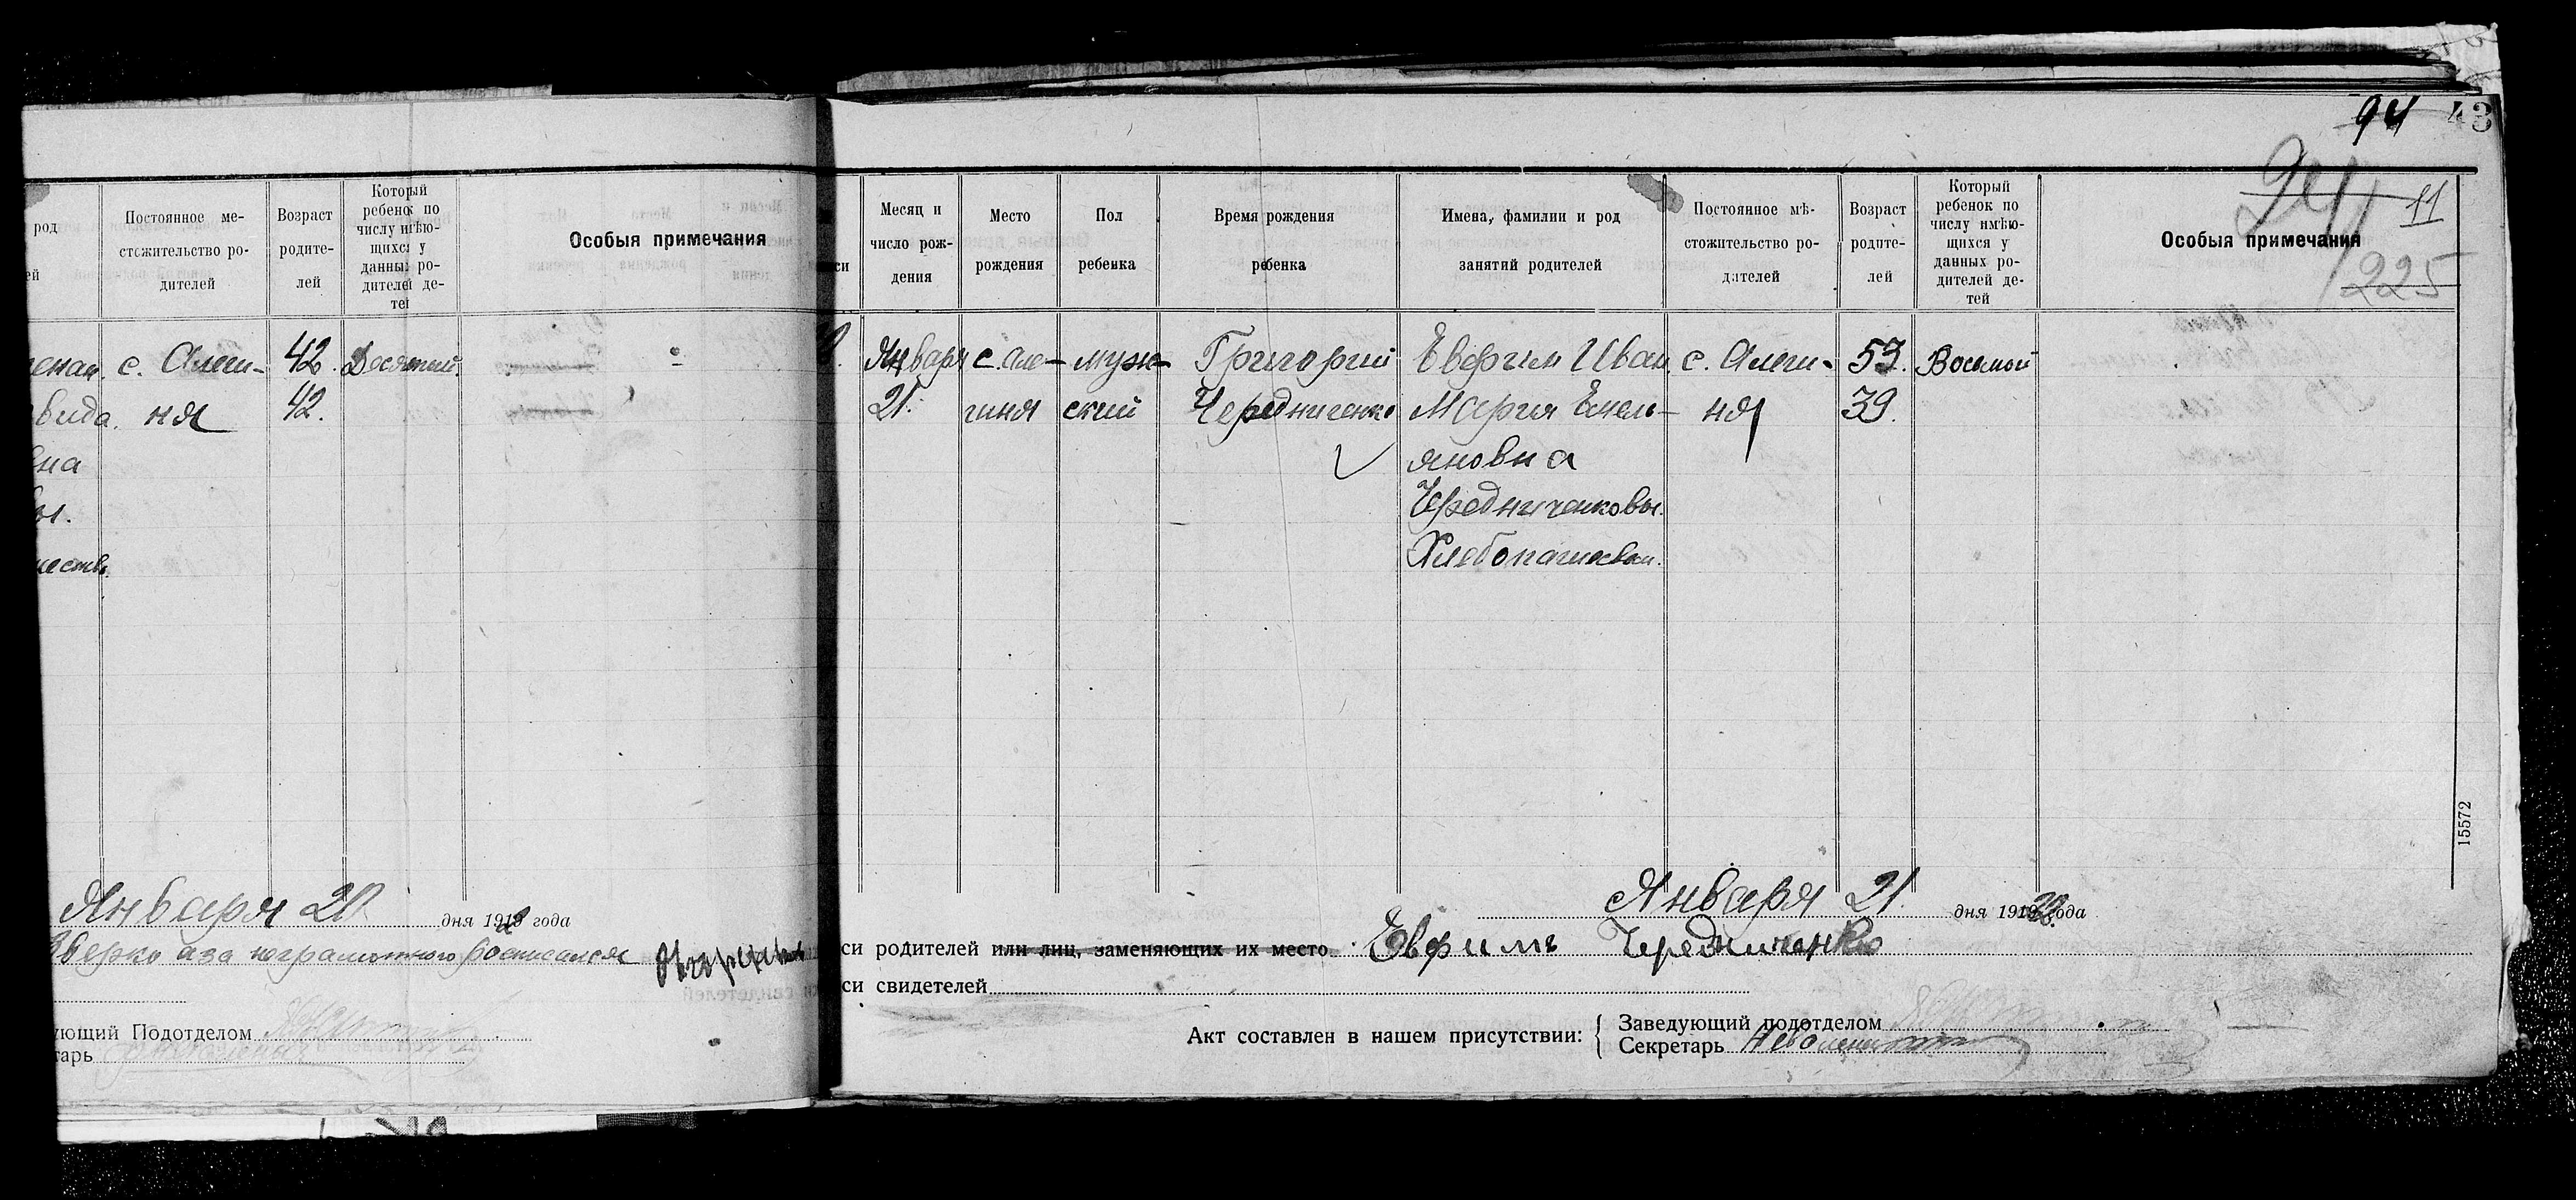 94 43
11
225
род
ей
Постоянное ме-
стожительство ро-
дителей
Возраст
родите-
лей
Который
ребенок по
числу имѣю-
щихся у
данных ро-
дителей де-
тей
Особыя примечания
с. Алеши-
ня
42.
42.
Десятый.
вида.
на
ы.
Января 20 дня 1919 года
неграмотного росписался
ующий Подотделом
тарь
си
Месяц и
число рож-
дения
Место
рождения
Пол
ребенка
Время рождения
ребенка
Имена, фамилии и род
занятий родителей
Постоянное мѣ-
стожительство ро-
дителей
Возраст
родите-
лей
Который
ребенок по
числу имѣю-
щихся у
данных ро-
дителей де-
тей
Особыя примечания
Января
21.
с. Але-
шня
муж-
ский
Григорий
Чередниченко
Евфим Иван.
Мария Емель-
яновна
Чередниченковы.
Хлебопашеством.
с. Алеши-
ня
53.
39.
Восьмой
15572
Января 21. дня 1919 года
си родителей или лиц, заменяющих их место. Евфимъ Чередниченко
си свидетелей
Акт составлен в нашем присутствии:
Заведующий подотделом
Секретарь